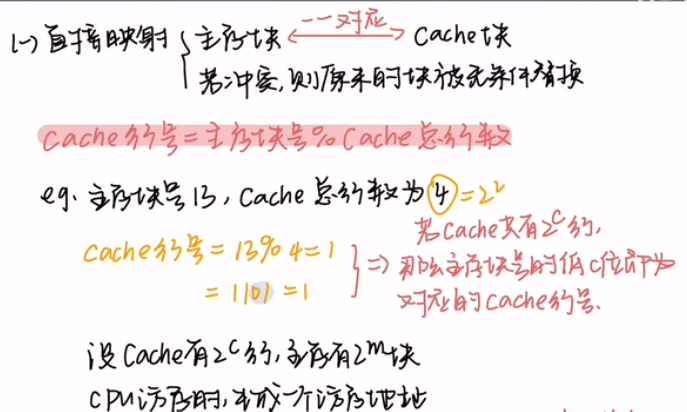 (一)直接映射 主存块 一一对应 Cache块
若冲突,则原来的块被无条件替换
Cache行号=主存块号%Cache总行数
eg. 主存块号13,Cache总行数为4=2²
Cache行号=13%4=1
=1101=1
若Cache共有2^c行,
那么主存块号的低c位即为
对应的Cache行号.
设Cache有2^c行,主存有2^m块
CPU访存时,生成一个访存地址